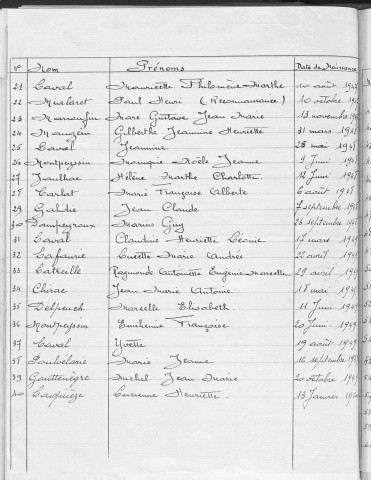 N° Nom Prénoms Date de Naissance
21 Laval Mauricette Philomène Marthe 10 août 1947
22 Mialaret Paul Henri (Reconnaissance) 10 octobre
23 Marc Gustave Jean Marie 13 novembre
24 Mauzein Gilberthe Jeannine Henriette 31 mars 1948
25 Laval Jeannine 25 mai 1948
26 Montpeyssin Françoise Noële Jeanne 9 Juin 1948
27 Hélène Marthe Charlotte 12 Juin 1948
28 Marie Françoise Alberte 6 août 1948
29 Galidie Jean Claude 7 septembre 1948
30 Dampeyroux Marius Guy 26 septembre
31 Laval Claudine Henriette Léonie 17 mars 1949
32 Lafaurie Lucette Marie Andrée 22 avril 1949
33 Latreille Raymonde Antoinette Eugénie Marcelle 29 avril
34 Chirac Jean Marie Antoine 18 mai 1949
35 Delpeuch Marcelle Elisabeth 11 Juin 1949
36 Montpeyssin Emilienne Françoise 20 Juin 1949
37 Laval Yvette 19 août 1949
38 Marie Jeanne 16 septembre
39 Gouttenègre Michel Jean Marie 20 octobre 1949
40 Lucienne Henriette. 13 Janvier